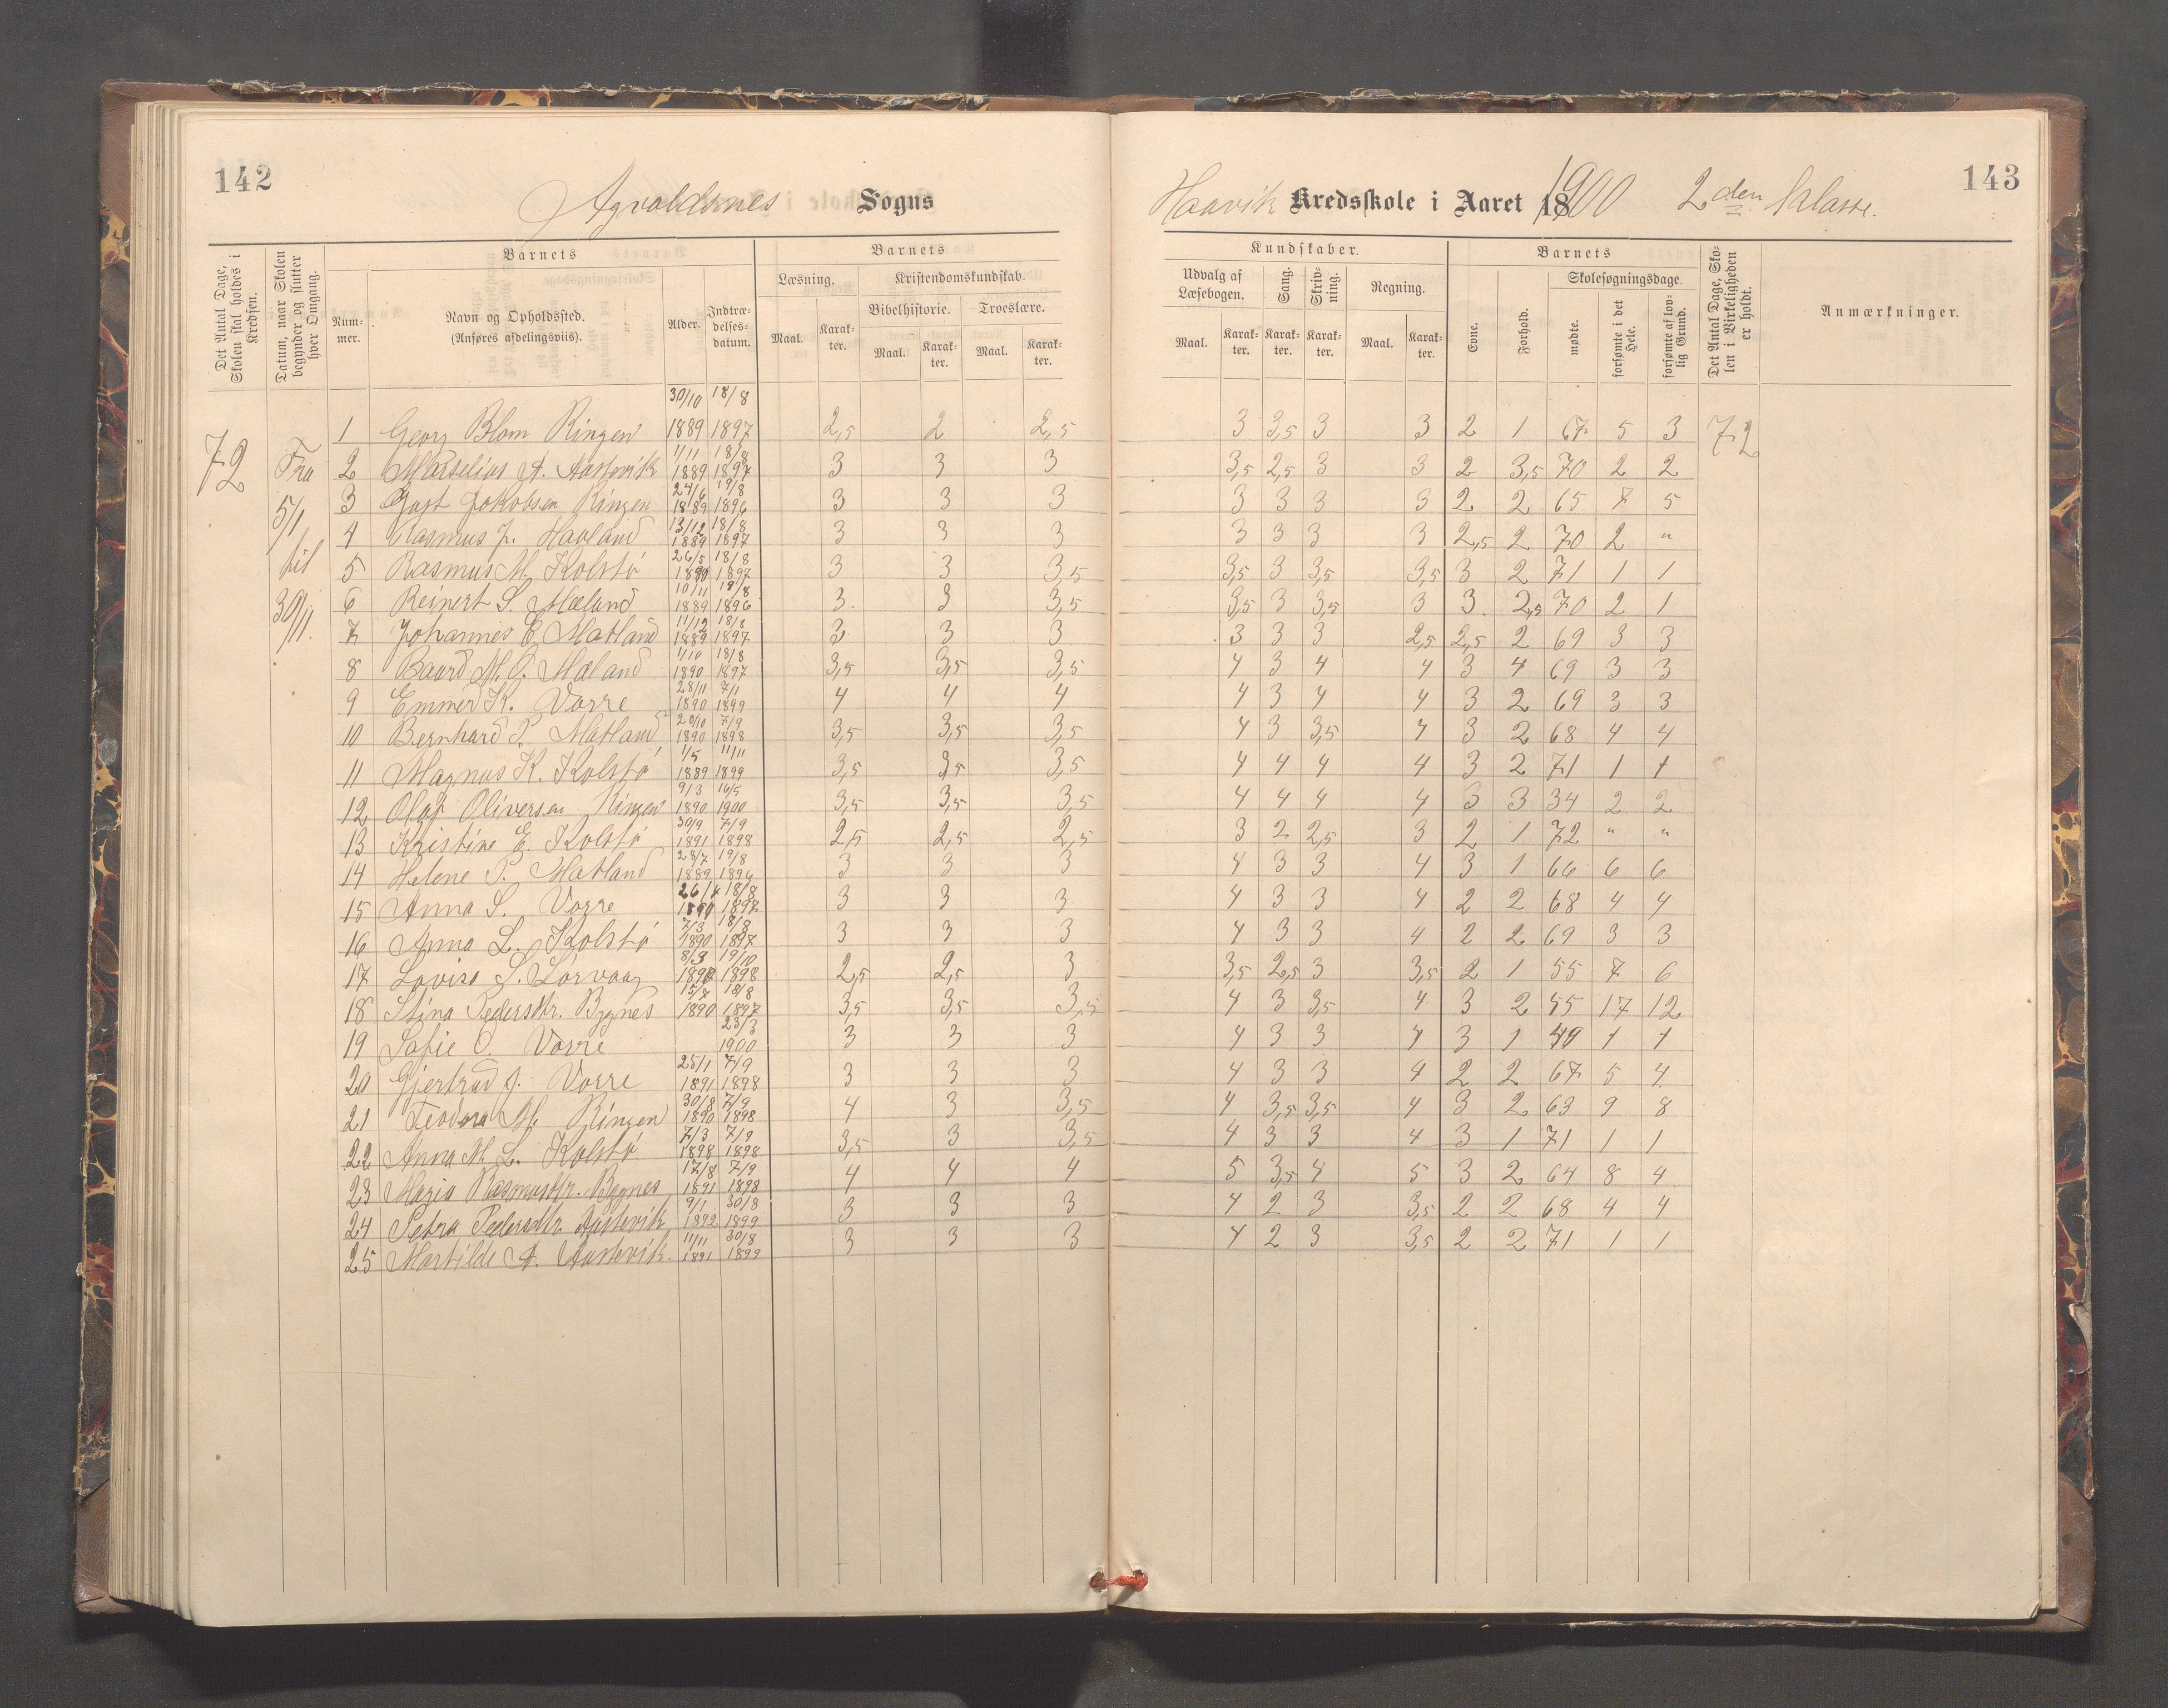 142
Agvaldsnes Sogns
Haavik Kredsskole i Aaret 1900 2den Klasse.
143
Det Antal Dage, Skolen skal holdes i Kredsen.
Datum, naar Skolen begynder og slutter hver Omgang.
Barnets
Num-mer.
Navn og Opholdssted. (Anføres afdelingsviis).
Alder.
Indtræ-delses-datum.
Barnets
Læsning.
Kristendomskundskab.
Bibelhistorie.
Troeslære.
Maal. Karak-ter. Maal. Karak-ter. Maal. Karak-ter.
Kundskaber.
Udvalg af Læsebogen.
Sang.
Skriv-ning.
Regning.
Maal. Karak-ter. Karak-ter. Karak-ter. Maal. Karak-ter.
Barnets
Evne.
Forhold.
Skolesøgningsdage.
mødte.
forsømte i det Hele.
forsømte af lov-lig Grund.
Det Antal Dage, Sko-len i Virkeligheden er holdt.
Anmærkninger.
72
Fra
5/1
til
30/11.
72
1 Georg Blom Ringen 30/10 1889 18/8 1897 2,5 2 2,5 3 3,5 3 3 2 1 67 5 3
2 Marselius A. Austevik 1/11 1889 18/8 1897 3 3 3 3,5 2,5 3 3 2 3,5 70 2 2
3 Gust Jakobsen Ringen 24/6 1889 19/8 1896 3 3 3 3 3 3 3 2 2 65 7 5
4 Rasmus J. Havland 13/12 1889 18/8 1897 3 3 3 3 3 3 3 2,5 2 70 2 "
5 Rasmus M. Kolstø 26/5 1890 18/8 1897 3 3 3,5 3,5 3 3,5 3,5 3 2 71 1 1
6 Reinert S. Mæland 10/11 1889 19/8 1896 3 3 3,5 3,5 3 3,5 3 3 2,5 70 2 1
7 Johannes E. Matland 11/12 1889 18/8 1897 3 3 3 3 3 3 2,5 2,5 2 69 3 3
8 Baard M. O. Mæland 1/10 1890 18/8 1897 3,5 3,5 3,5 4 3 4 4 3 4 69 3 3
9 Emmer K. Vorre 28/11 1890 7/1 1899 4 4 4 4 3 4 4 3 2 69 3 3
10 Bernhard P. Matland 20/10 1890 7/9 1898 3,5 3,5 3,5 4 3 3,5 4 3 2 68 4 4
11 Magnus K. Kolstø 1/5 1889 11/11 1899 3,5 3,5 3,5 4 4 4 4 3 2 71 1 1
12 Olaf Oliversen Ringen 9/3 1890 16/5 1900 3,5 3,5 3,5 4 4 4 4 3 3 34 2 2
13 Kristine E. Kolstø 30/9 1891 7/9 1898 2,5 2,5 2,5 3 2 2,5 3 2 1 72 " "
14 Helene P. Matland 28/7 1889 19/8 1896 3 3 3 4 3 3 4 3 1 66 6 6
15 Anna S. Vorre 18/8 1897 3 3 3 4 3 3 4 2 2 68 4 4
16 Anna L. Kolstø 7/3 1890 18/8 1897 3 3 3 4 3 3 4 2 2 69 3 3
17 Lovisa S. Sørvaag 8/3 19/10 1898 2,5 2,5 3 3,5 2,5 3 3,5 2 1 55 7 6
18 Stina Pedersdtr. Bygnes 15/7 1890 18/8 1897 3,5 3,5 3,5 4 3 3,5 4 3 2 55 17 12
19 Sofie O. Vorre 23/3 1900 3 3 3 4 3 3 4 3 1 49 1 1
20 Gjertrud J. Vorre 25/1 1891 7/9 1898 3 3 3 4 3 3 4 2 2 67 5 4
21 Teodora M. Ringen 30/8 1890 7/9 1898 4 3 3,5 4 3,5 3,5 4 3 2 63 9 8
22 Anna M. L. Kolstø 7/3 1898 7/9 1898 3,5 3 3,5 4 3 3 4 3 1 71 1 1
23 Maria Rasmusdtr. Bygnes 17/8 1891 7/9 1898 4 4 4 5 3,5 4 5 3 2 64 8 4
24 Petra Pedersdtr. Austevik 9/1 1892 30/8 1899 3 3 3 4 2 3 3,5 2 2 68 4 4
25 Martilde A. Austevik. 11/11 1891 30/8 1899 3 3 3 4 2 3 3,5 2 2 71 1 1